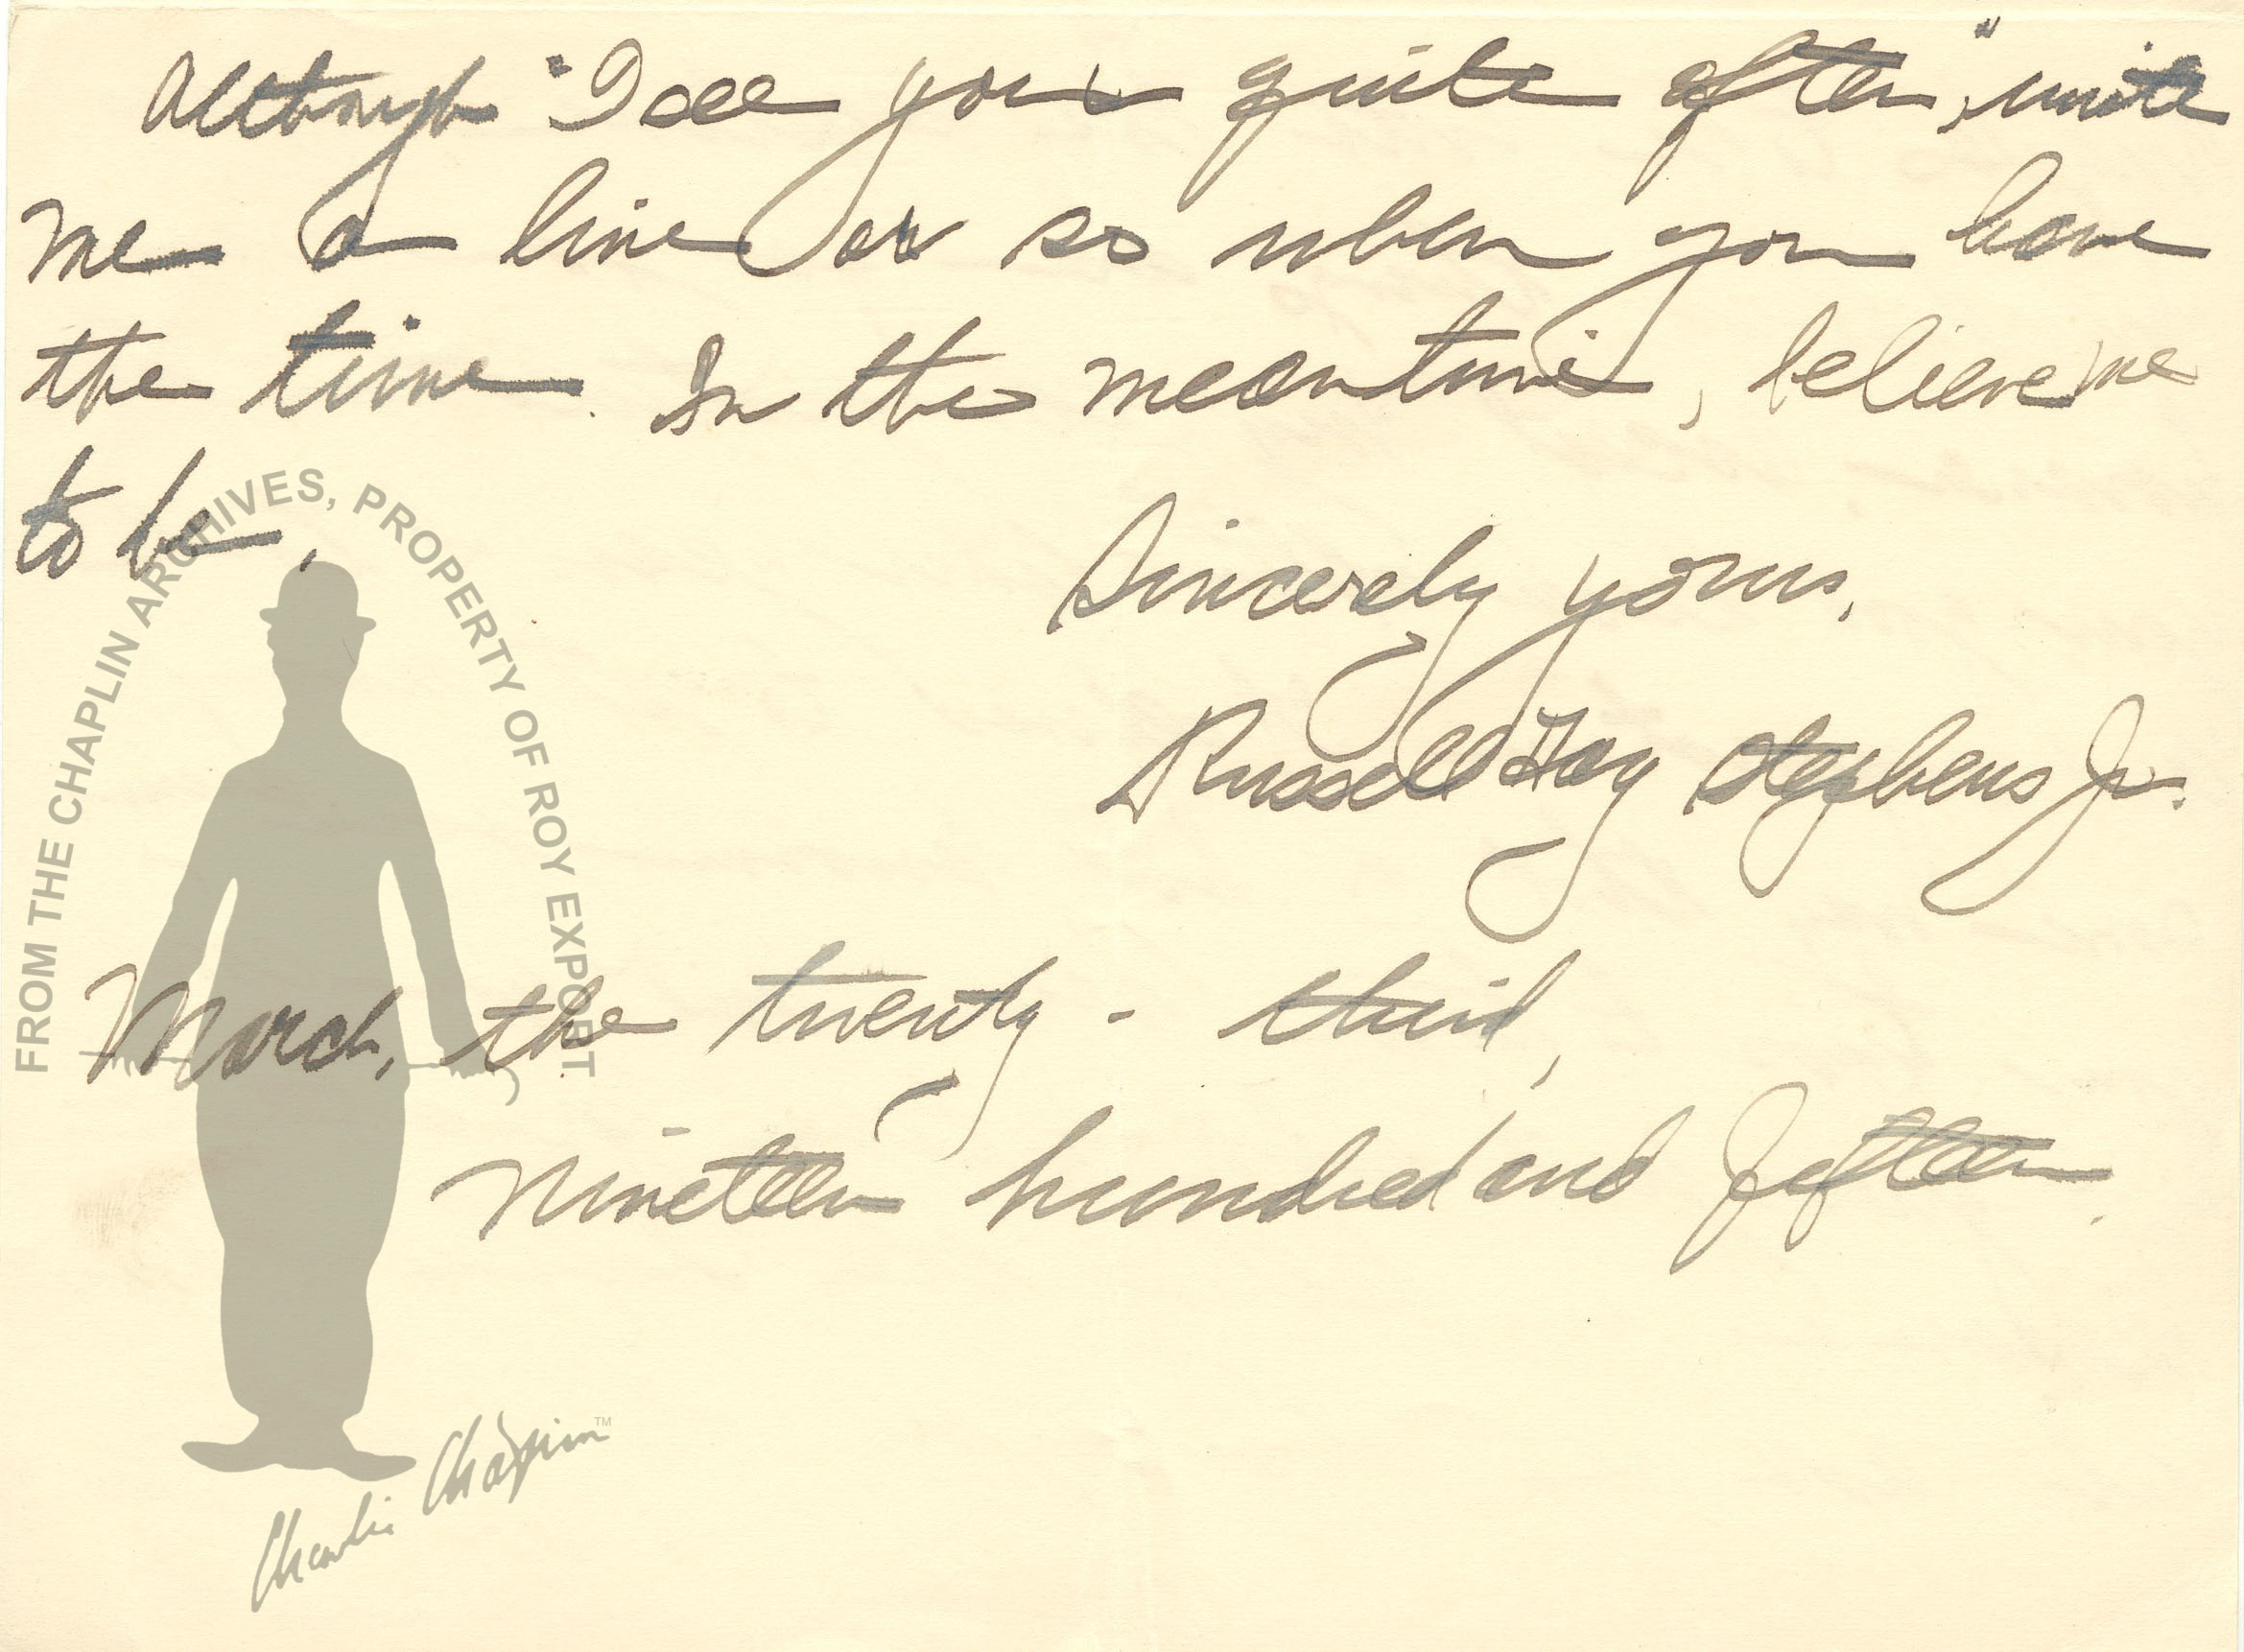 Although "I see you quite often", write
me a line or so when you have
the time. In the meantime, believe me
to be,
Sincerely yours,
Russell Fay Stephens Jr.
March, the twenty-third,
Nineteen hundred and fifteen.
FROM THE CHAPLIN ARCHIVES, PROPERTY OF ROY EXPORT
Charlie Chaplin™